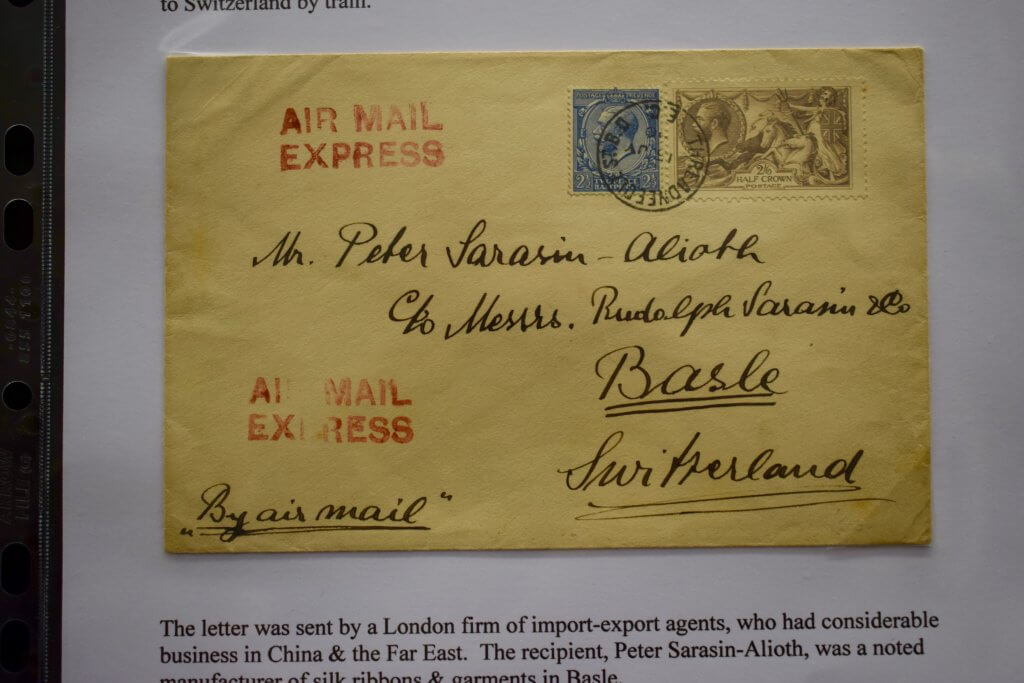 to Switzerland by train.
AIR MAIL
EXPRESS
POSTAGE REVENUE
2½ 2½
2/6
HALF CROWN
POSTAGE
THREADNEEDLE
Mr. Peter Sarasin-Alioth
C/o Messrs. Rudolph Sarasin & Co
Basle
Switzerland
AI MAIL
EX RESS
"By air mail"
The letter was sent by a London firm of import-export agents, who had considerable
business in China & the Far East. The recipient, Peter Sarasin-Alioth, was a noted
manufacturer of silk ribbons & garments in Basle.